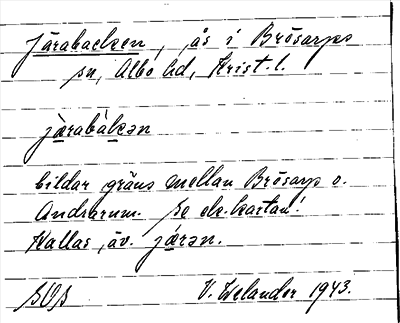 Järabacken, ås i Brösarps
sn, Albo hd, Krist. l.
jàrabàkən
bildar gräns mellan Brösarp o.
Andrarum. Se ek. kartan!
Kallas äv. járən.
V. Welander 1943.